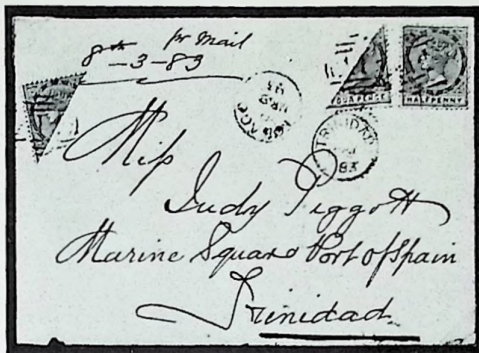 pr Mail
8th -3-83
FOUR PENCE
HALFPENNY
TOBAGO
TRINIDAD
83
Miss
Judy Piggott
Marine Square Port of Spain
Trinidad